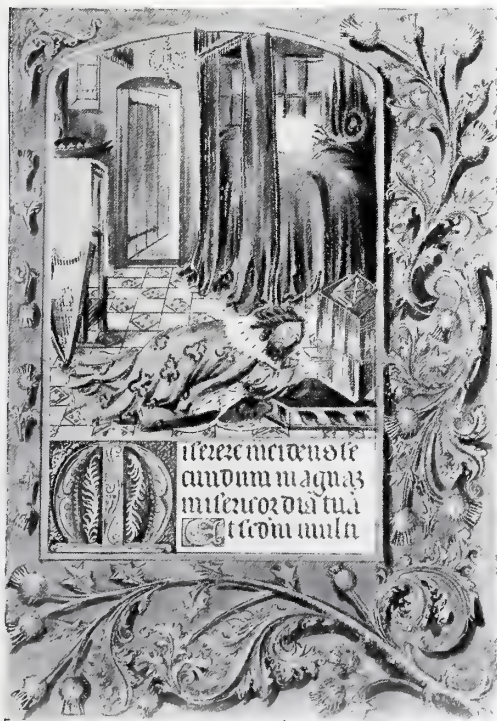 Miserere mei deus se
cundum magnaꝫ
misericordiā tuā
Et sedm multi